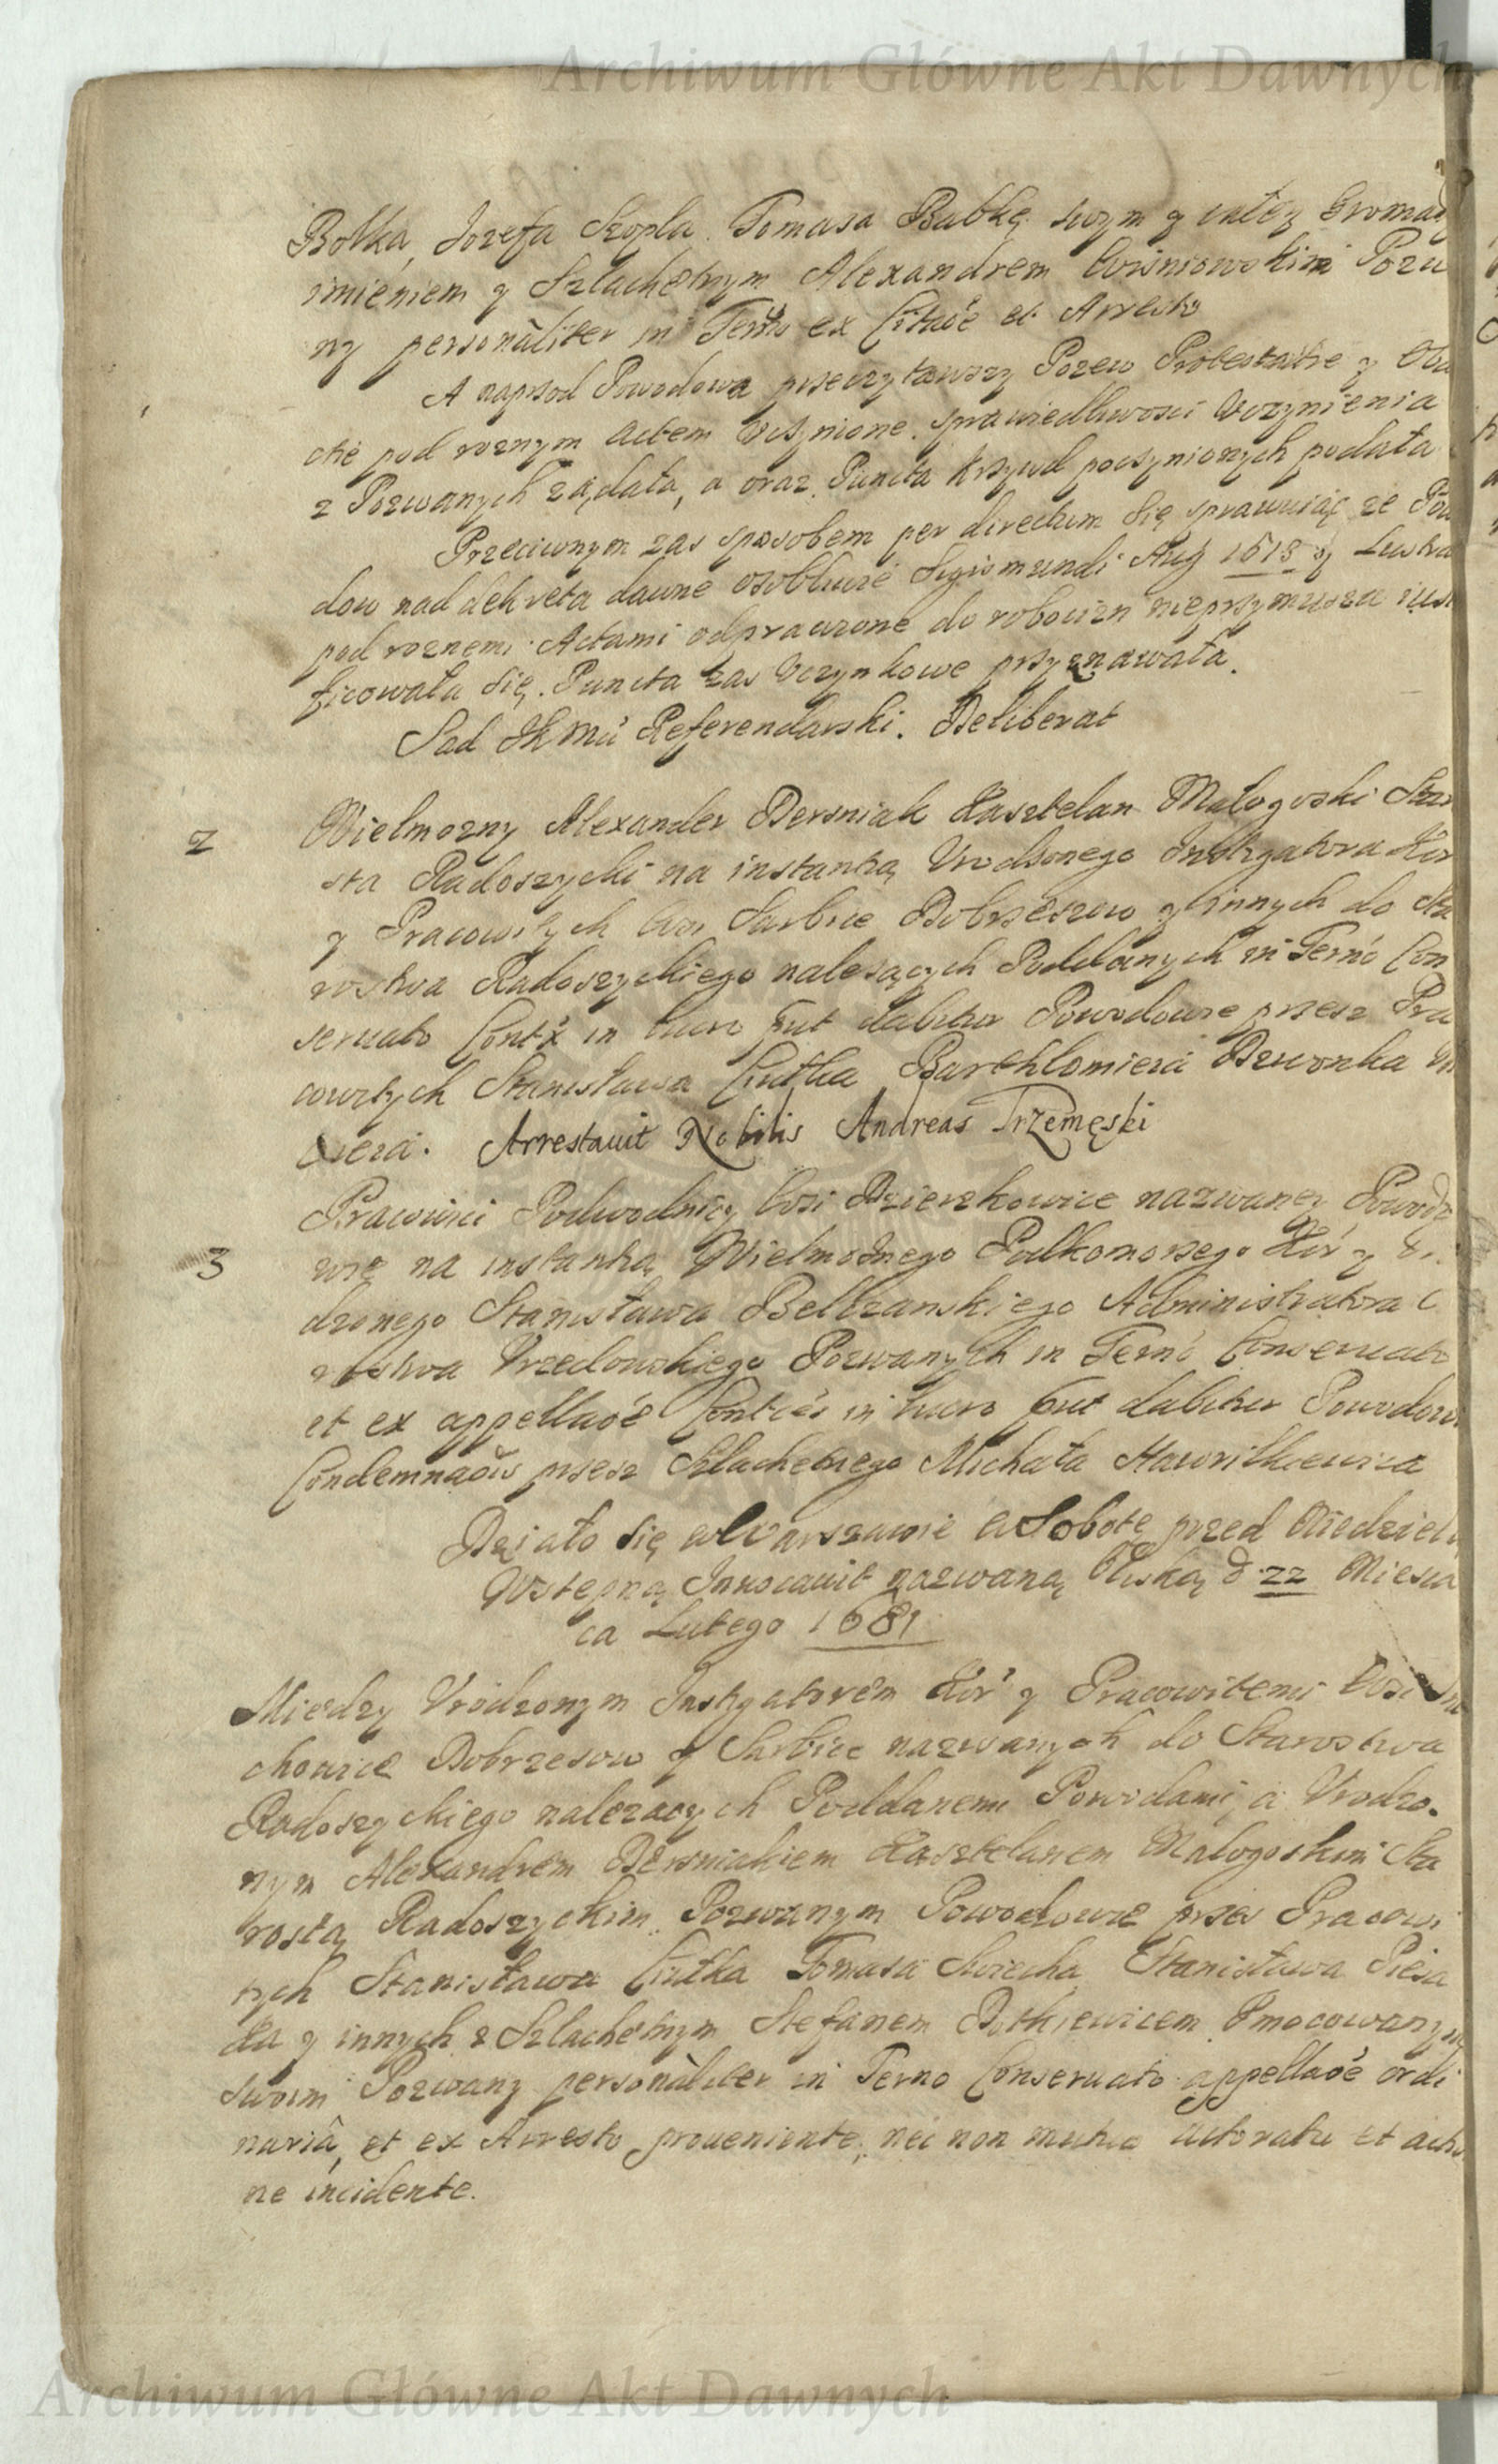 Archiwum Główne Akt Dawnych
Bolka, Jozefa Szopla Tomasa Bubkę swym y całey Gromad
imieniem y Szlachetnym Alexandrem Wiśniowskim Pozw
ny personàliter in Termo ex Citaoē et Arresto
A naprsod Powodowa przeczytawszy Pozew Protestatie y Obdu
ctie pod roznym Actem vczynione sprawiedliwosci Vczynienia
z Pozwanych ządała, a oraz Puncta krzywd poczynionych podała
Przeciwnym zas sposobem per directum się sprawuiąc ze Pod
dow nad dekreta dawne osobliwie Sigismundi Aug 1518 y Lustra
pod roznemi Actami odprawione do robocizn nieprzymusza iusti
ficowała się. Puncta zas Vczynkowe przyznawała.
Sad JKMci Referendarski. Deliberat
2 Wielmozny Alexander Dersniak Kasztelan Małogoski Staro
sta Radoszycki na instantią Vrodzonego Instigatora Kor
y Pracowitych Wsi Sarbice Dobrzeszow y innych do Sta
rostwa Radoszyckiego nalezących Poddanych in Termo Con
seruato Contx in lucro put dabitur Powodowie przez Pra
cowitych Stanisława Ciutka Barthlomieia Dzwonka
Arrestauit Nobilis Andreas Trzemęski
3 Pracowici Podwodnicy Wsi Dzierzkowice nazwaney Powodo
wie na instantią Wielmoznego Podkomorzego Kor y
dzonego Stanisława Bełdzanskiego Administratora
rostwa Vrzedowskiego Pozwanych in Termo Conseruato
et ex appellaoē Conties in lucro put dabitur Powodow
Condemnaoīs przez Szlachetnego Michała Hawriłkiewicza
Działo się w Warszawie w Sobotę przed Niedziel
Wstepną Inuocauit nazwaną bliską d 22 Miesia
ca Lutego 1681
Miedzy Vrodzonym Instigatorem Kor y Pracowitemi Wsi
chowice Dobrzesow y Sarbice nazwanych do Starostwa
Radoszyckiego nalezacych Poddanemi Powodami a Vrodzo-
nym Alexandrem Dersniakiem Kasztelanem Małogoskim Sta
rostą Radoszyckim Pozwanym Powodowie przez Pracowi
tych Stanisława Ciutka Tomasa Swiecha Stanisława Piesa
ka y innych z Szlachetnym Stefanem Butkiewicem Vmocowanym
swoim Pozwany personàliter in Termo Conseruato appellaoē ordi
nariâ, et ex Arresto proueniente, nec non mutuo actoratu et actio
ne incidente.
Archiwum Główne Akt Dawnych